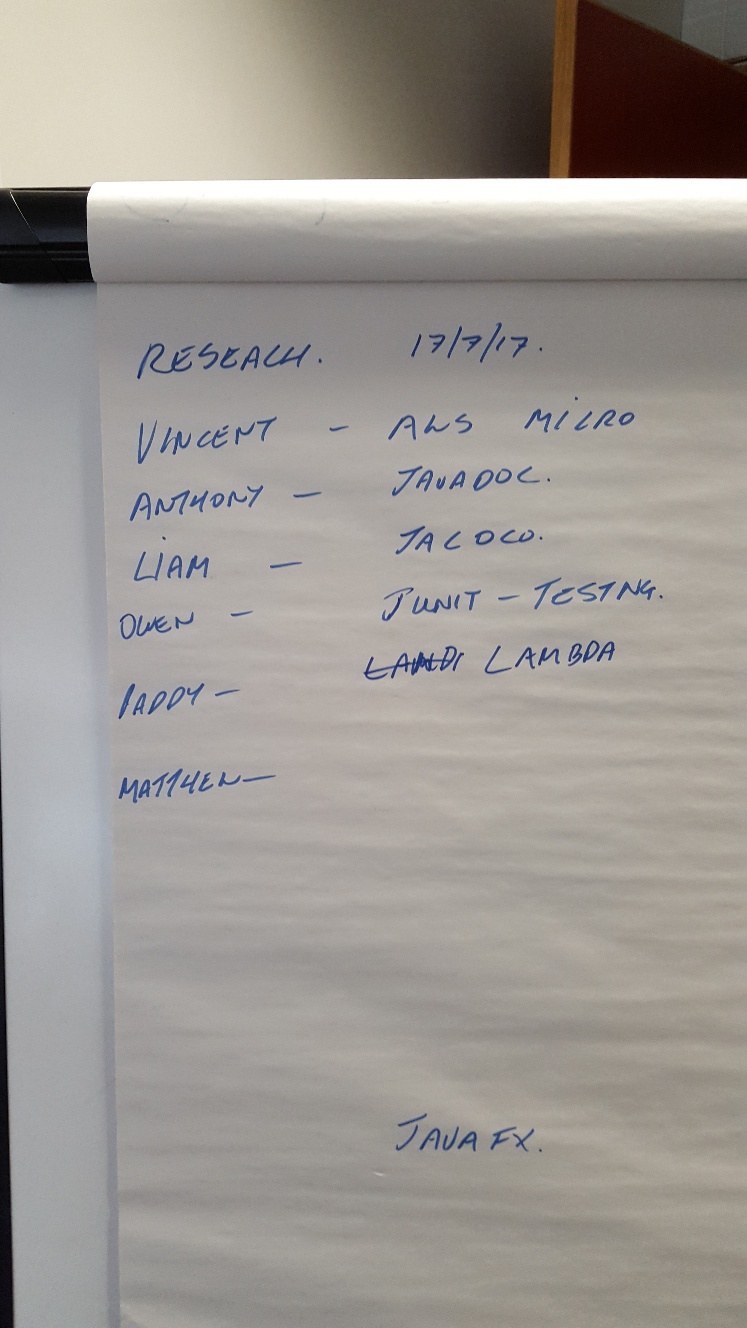 RESEACH. 17/7/17.
VINCENT - AWS MICRO
ANTHONY - JAVADOC.
LIAM - JACOCO.
OWEN - JUNIT - TESTNG.
PADDY - LAMBDA
MATTHEW -
JAVA FX.